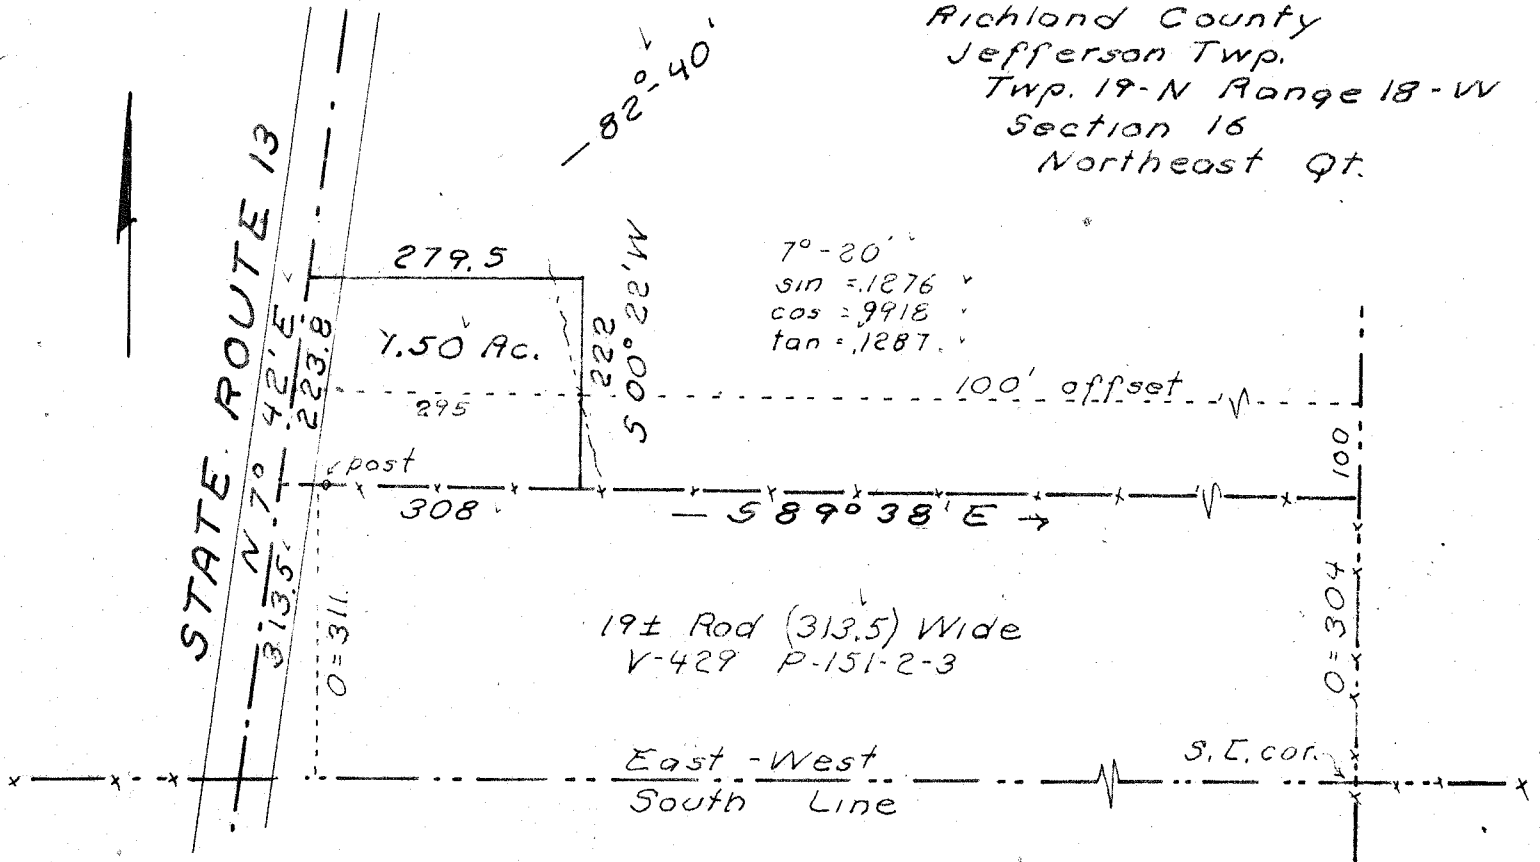 Richland County
Jefferson Twp.
Twp. 19-N Range 18-W
Section 16
Northeast Qt.
— 82°-40'
STATE ROUTE 13
N 7° 42' E
223.8
313.5
279.5
1.50 Ac.
222
S 00° 22' W
7°-20'
sin = .1276
cos = .9918
tan = .1287
100' offset
295
post
308
— S 89° 38' E →
100
0=311
0=304
19± Rod (313.5) Wide
V-429 P-151-2-3
East - West
South Line
S.E. cor.